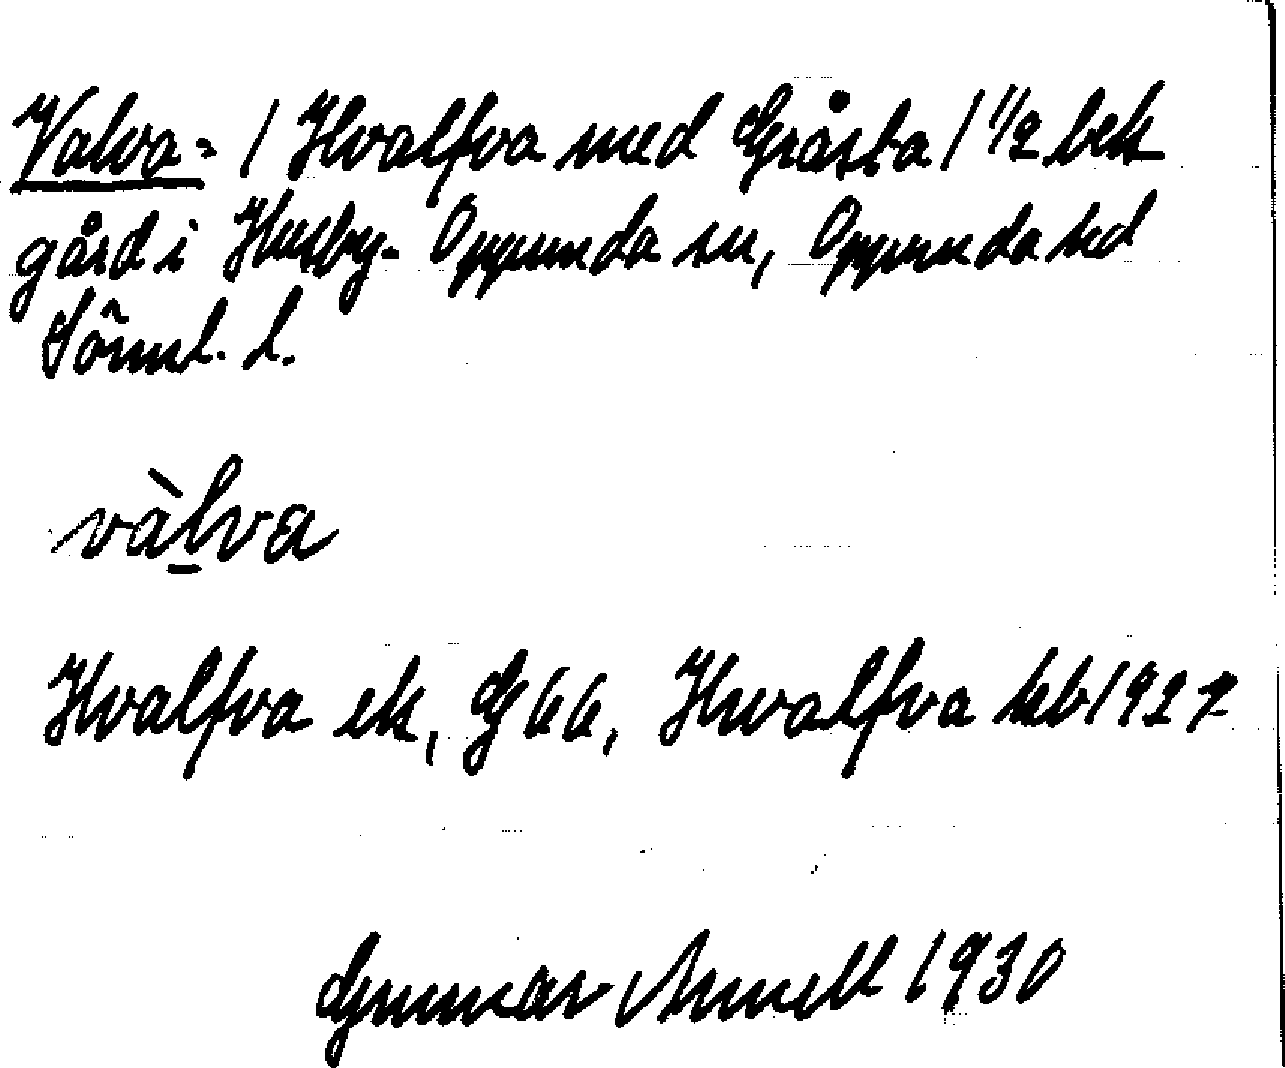 Valva = / Hvalfva med Gråsta / 1 1/2 bek
gård i Husby-Oppunda sn, Oppunda hd
Söml. l.
vàlva
Hvalfva ek, G 66, Hvalfva kb 1927
Gunnar Arnell 1930